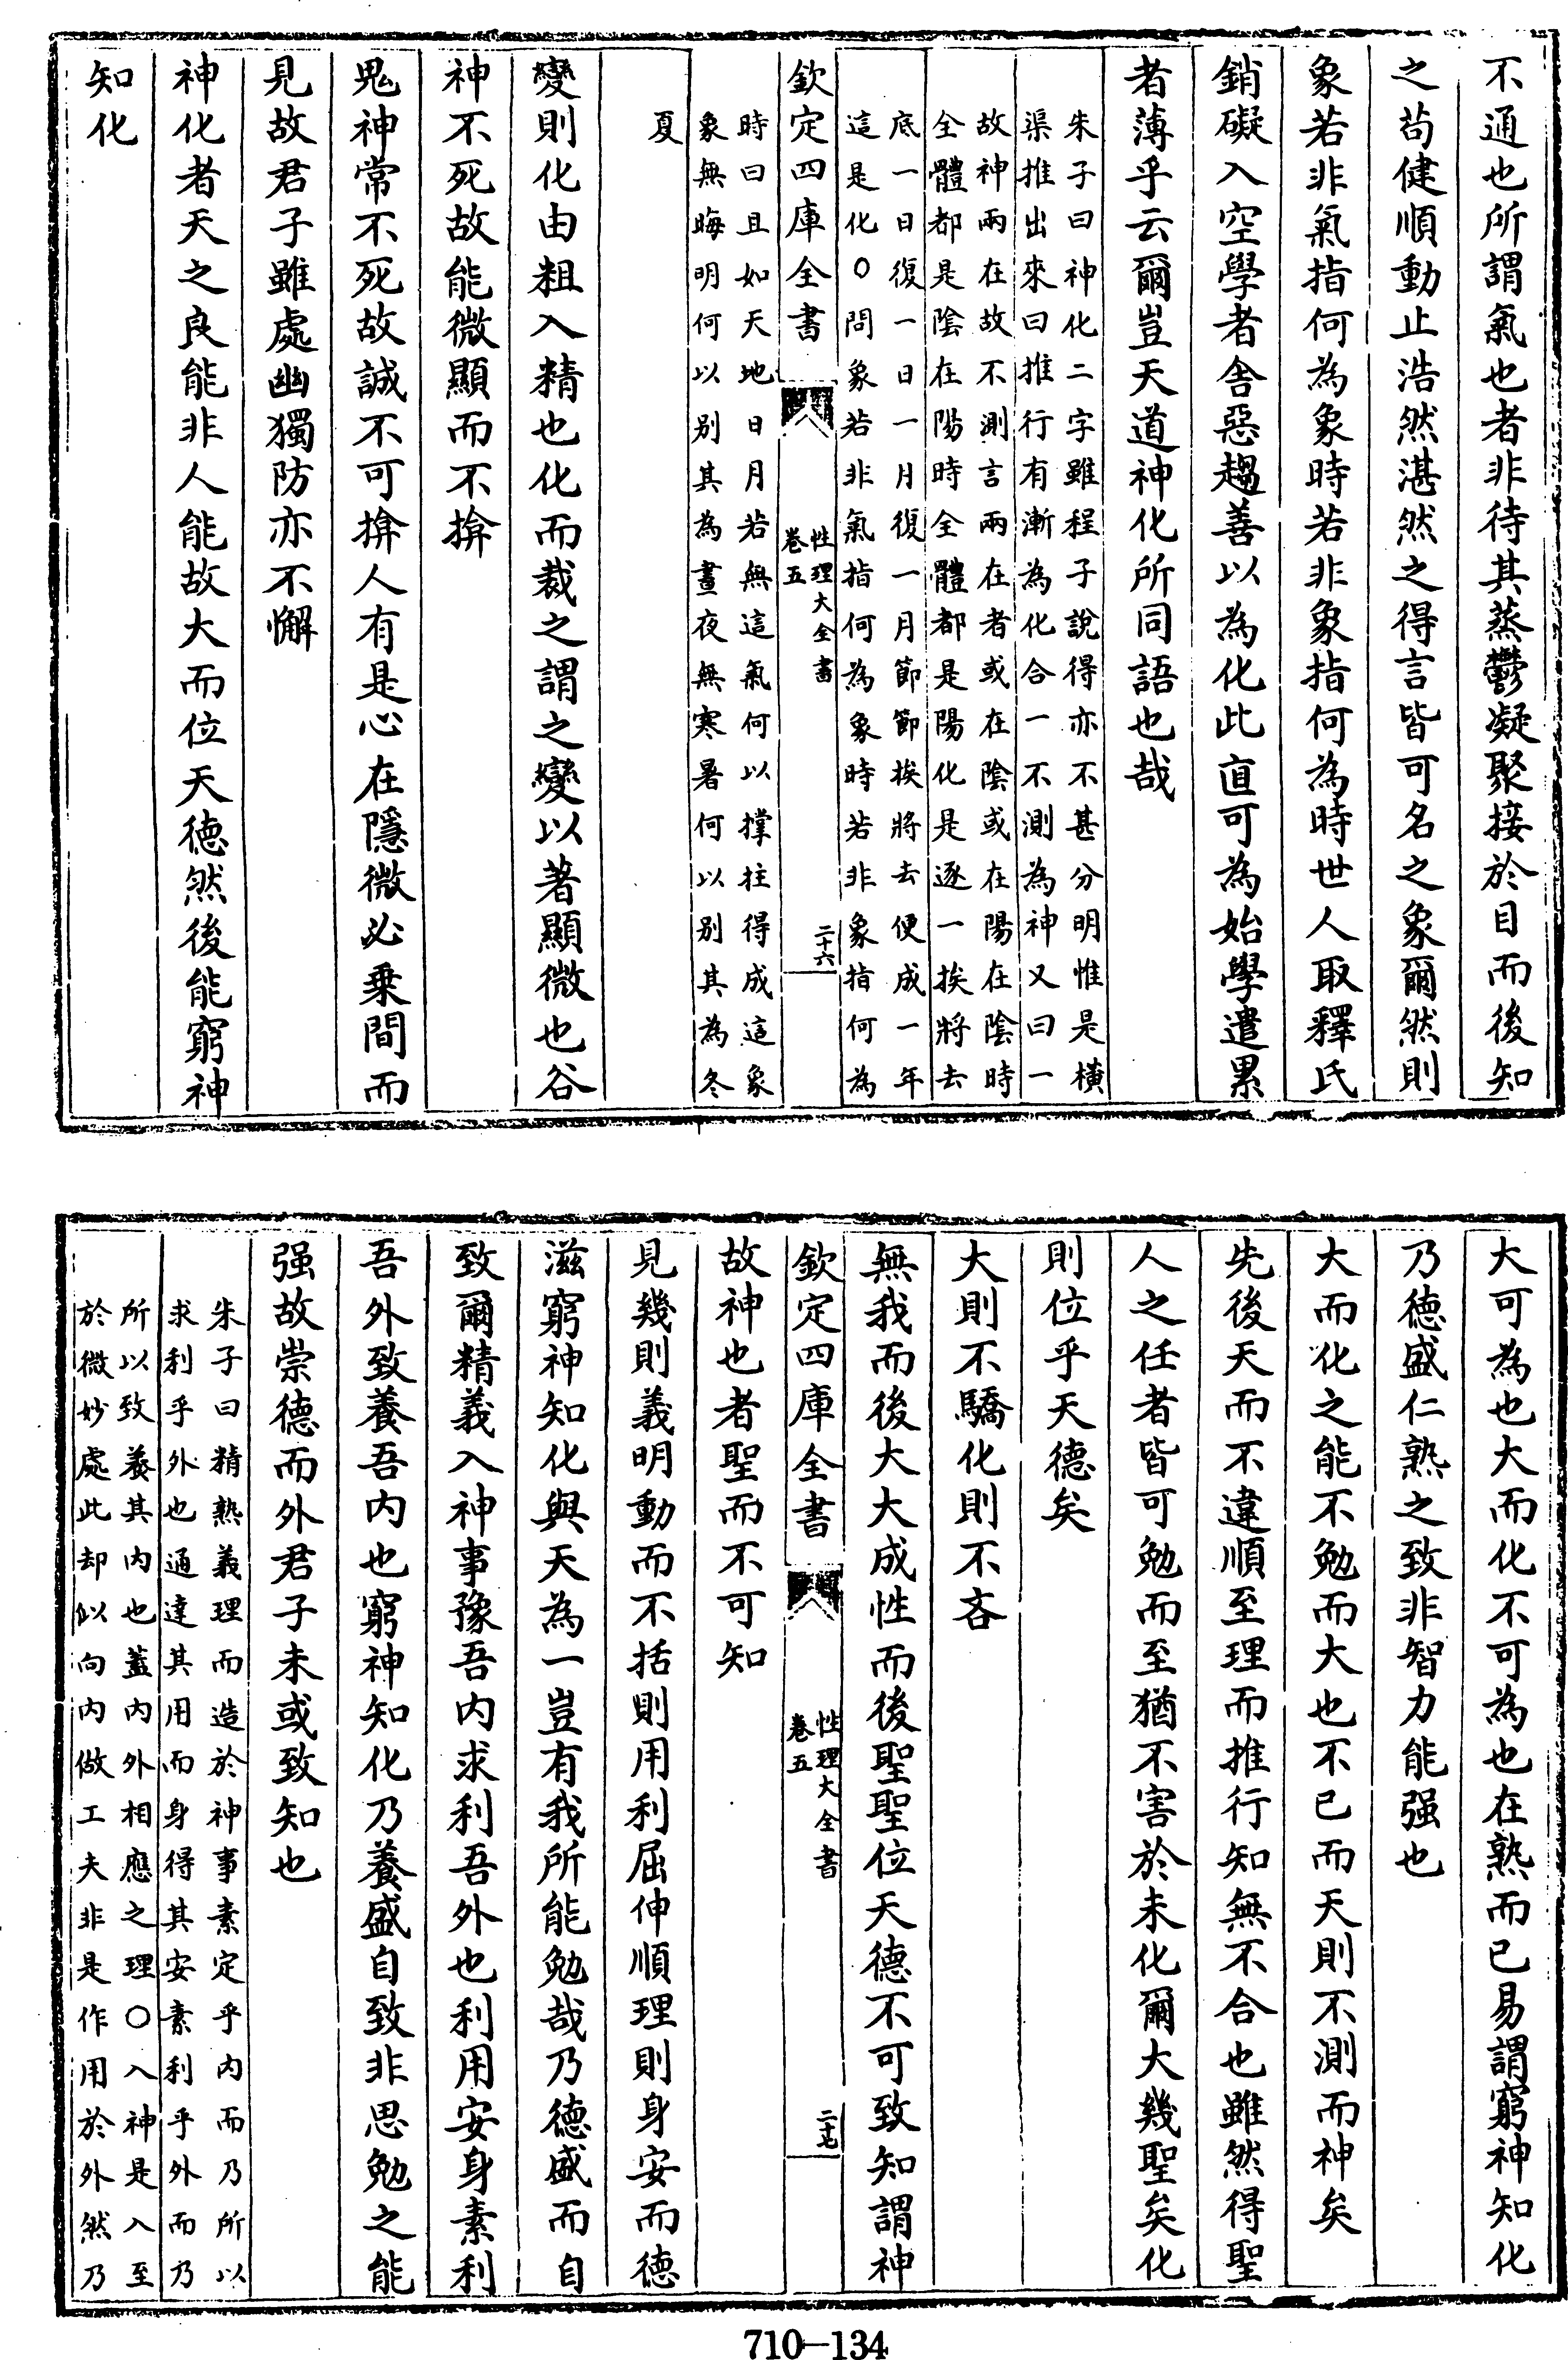 不通也所謂氣也者非待其蒸鬱凝聚接於目而後知
之苟健順動止浩然湛然之得言皆可名之象爾然則
象若非氣指何為象時若非象指何為時世人取釋氏
銷礙入空學者舍惡趨善以為化此直可為始學遣累
者薄乎云爾豈天道神化所同語也哉
朱子曰神化二字雖程子說得亦不甚分明惟是橫
渠推出來曰推行有漸為化合一不測為神又曰一
故神兩在故不測言兩在者或在陰或在陽在陰時
全體都是陰在陽時全體都是陽化是逐一挨將去
底一日復一日一月復一月節節挨將去便成一年
這是化○問象若非氣指何為象時若非象指何為
欽定四庫全書
性理大全書
卷五
二十六
時曰且如天地日月若無這氣何以撑拄得成這象
象無晦明何以别其為晝夜無寒暑何以别其為冬
夏
變則化由粗入精也化而裁之謂之變以著顯微也谷
神不死故能微顯而不揜
鬼神常不死故誠不可揜人有是心在隱微必乗間而
見故君子雖處幽獨防亦不懈
神化者天之良能非人能故大而位天德然後能窮神
知化
大可為也大而化不可為也在熟而已易謂窮神知化
乃德盛仁熟之致非智力能强也
大而化之能不勉而大也不已而天則不測而神矣
先後天而不違順至理而推行知無不合也雖然得聖
人之任者皆可勉而至猶不害於未化爾大幾聖矣化
則位乎天德矣
大則不驕化則不吝
無我而後大大成性而後聖聖位天德不可致知謂神
欽定四庫全書
性理大全書
卷五
二十七
故神也者聖而不可知
見幾則義明動而不括則用利屈伸順理則身安而德
滋窮神知化與天為一豈有我所能勉哉乃德盛而自
致爾精義入神事豫吾内求利吾外也利用安身素利
吾外致養吾内也窮神知化乃養盛自致非思勉之能
强故崇德而外君子未或致知也
朱子曰精熟義理而造於神事素定乎内而乃所以
求利乎外也通達其用而身得其安素利乎外而乃
所以致養其内也蓋内外相應之理○入神是入至
於微妙處此却似向内做工夫非是作用於外然乃
710—134